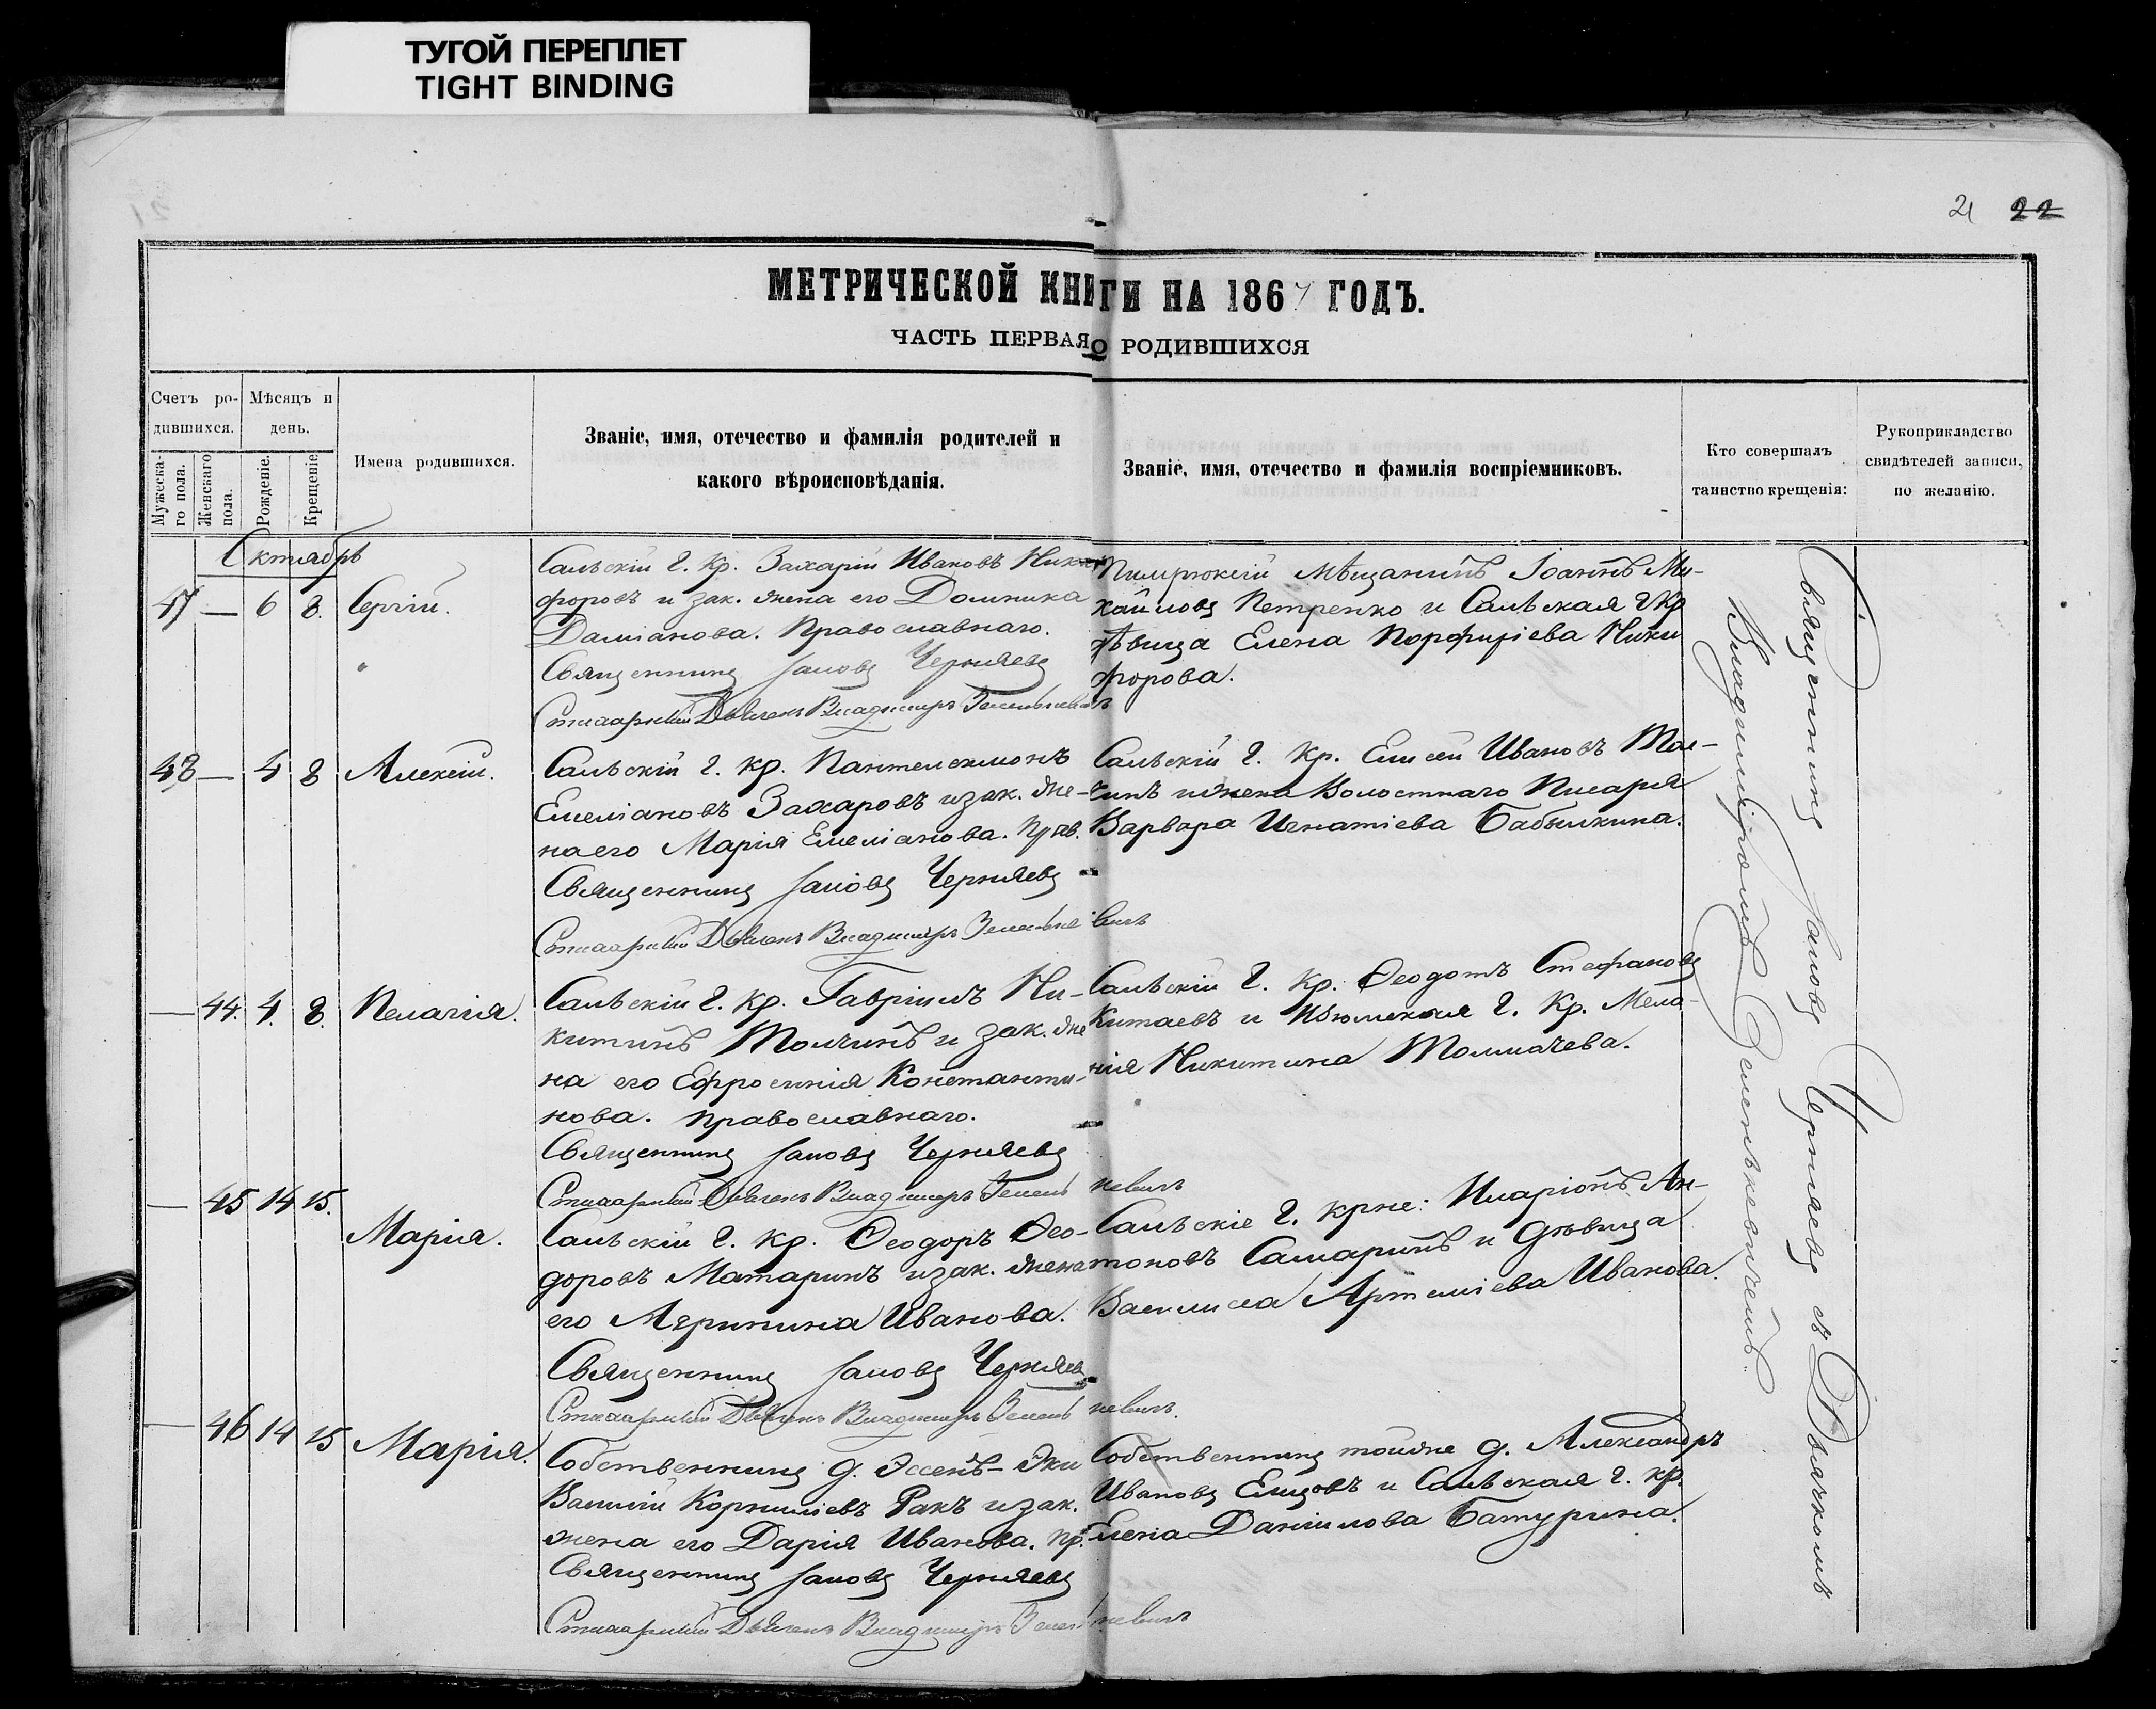 ТУГОЙ ПЕРЕПЛЕТ
TIGHT BINDING
21 22
МЕТРИЧЕСКОЙ КНИГИ НА 1867 ГОДЪ.
ЧАСТЬ ПЕРВАЯ О РОДИВШИХСЯ
Счетъ ро-
дившихся.
Мужеска-
го пола.
Женскаго
пола.
Мѣсяцъ и
день.
Рожденіе.
Крещеніе
Имена родившихся.
Званіе, имя, отечество и фамилія родителей и
какого вѣроисповѣданія.
Званіе, имя, отечество и фамилія воспріемниковъ.
Кто совершалъ
таинство крещенія:
Рукоприкладство
свидѣтелей записи,
по желанію.
Октябрь
47 — 6 8. Сергій.
Сальскій г. кр. Захарій Ивановъ Ники-
форовъ и зак. жена его Домника
Даміанова. Православнаго.
Священникъ Іаковъ Черняевъ
Стихарный Дьячекъ Владимиръ Зеленкевичъ
мѣщанинъ Іоаннъ Ми-
хайловъ Петренко и Сальская г. кр
дѣвица Елена Порфиріева Ники
форова.
48 — 4 8 Алексій.
Сальскій г. кр. Пантелеимонъ
Емеліановъ Захаровъ и зак. же-
на его Марія Емеліанова. Прав.
Священникъ Іаковъ Черняевъ
Стихарный Дьячекъ Владимиръ Зеленкевичъ
Сальскій г. кр. Елисей Ивановъ Тол-
чинъ и жена Волостнаго Писаря
Варвара Игнатіева Бабышкина.
— 44. 4. 8. Пелагія.
Сальскій г. кр. Гавріилъ Ни-
китинъ Толчинъ и зак. же
на его Ефросинія Константи-
нова. Православнаго.
Священникъ Іаковъ Черняевъ
Стихарный Дьячекъ Владимиръ Зеленкевичъ
Сальскій г. кр. Ѳеодотъ Стефановъ
Китаевъ и г. кр. Мела-
нія Никитина Толмачева.
— 45 14 15. Марія.
Сальскій г. кр. Ѳеодоръ Ѳео-
доровъ Матаринъ и зак. жена
его Агрипина Иванова.
Священникъ Іаковъ Черняевъ
Стихарный Дьячекъ Владимиръ Зеленкевичъ.
Сальскіе г. крне: Иларіонъ Ан-
тоновъ Самаринъ и дѣвица
Василиса Артеміева Иванова.
— 46 14 15 Марія.
Собственникъ д. Эссенъ-Эки
Василій Корниліевъ Ракъ и зак.
жена его Дарія Иванова. пр.
Священникъ Іаковъ Черняевъ
Стихарный Дьячекъ Владимиръ Зеленкевичъ
Собственникъ тойже д. Александръ
Ивановъ Елцовъ и Сальская г. кр.
Елена Даніилова Батурина.
Священникъ Іаковъ Черняевъ съ Дьячкомъ
Владиміромъ Зеленкевичемъ.